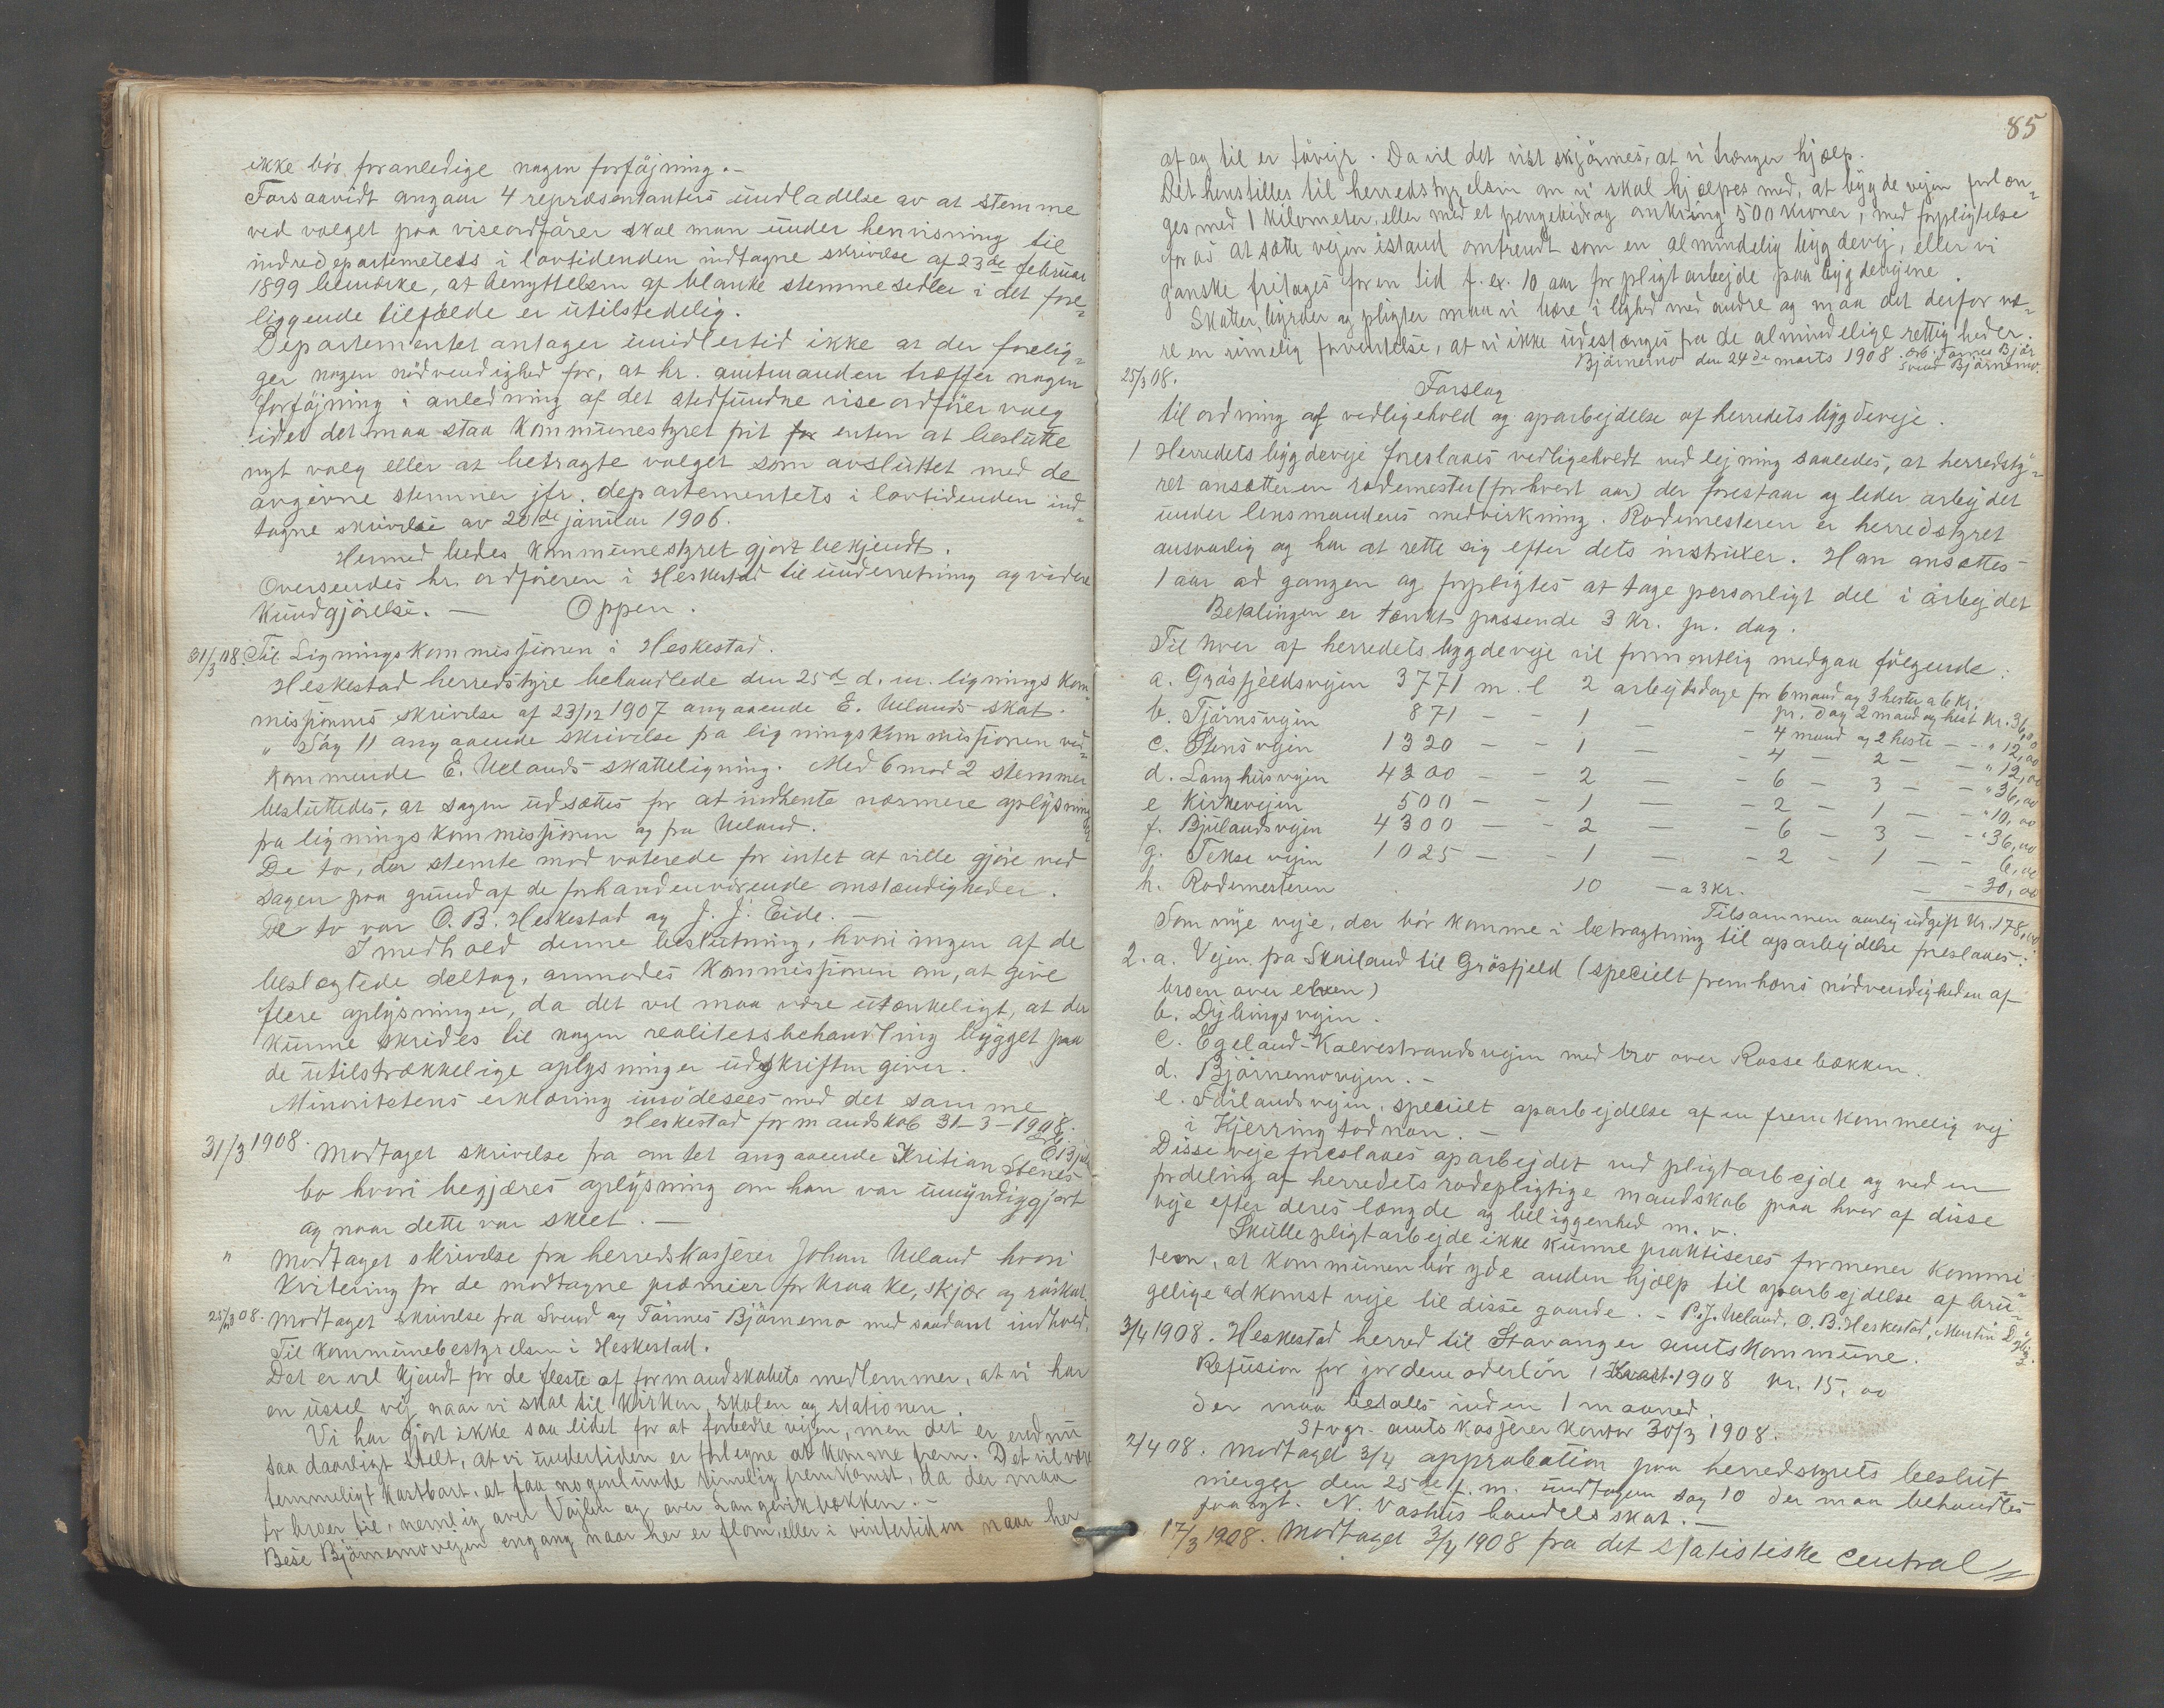 ikke bør foranledige nogen forføjning. -
Forsaavidt angaar 4 repræsentanters undladelse av at stemme
ved valget paa viseordfører skal man under henvisning til
indredepartemetets i lovtidenden indtagne skrivelse af 23de februar
1899 bemærke, at benyttelsen af blanke stemmesedler i det fore-
liggende tilfælde er utilstedelig.
Departementet antager imidlertid ikke at der forelig-
ger nogen nødvendighed for, at hr. amtmanden træffer nogen
forføjning i anledning af det stedfundne viseordfører valg
idet det maa staa kommunestyret frit for enten at beslutte
nyt valg eller at betragte valget som avsluttet med de
avgivne stemmer jfr. departementets i lovtidenden ind-
tagne skrivelse av 20de januar 1906.
Hermed bedes kommunestyret gjort bekjendt.
Oversendes hr. ordføreren i Heskestad til underretning og videre
kundgjørelse. - Oppen.
31/3 08. Til Ligningskommissjonen i Heskestad.
Heskestad herredstyre behandlede den 25de d. m. lignings kom-
missjonens skrivelse af 23/12 1907 angaaende E. Uelands skat.
" Sag 11 angaaende skrivelse fra ligningskommissjonen ved-
kommende E. Uelands skatteligning. Med 6 mod 2 stemmer
besluttedes, at sagen udsættes for at indhente nærmere oplysninger
fra ligningskommissjonen og fra Ueland.
De to, der stemte mod voterede for intet at ville gjøre ved
sagen paa grund af de forhandenværende omstændigheder.
De to var O. B. Heskestad og J. J. Eide. -
I medhold denne beslutning, hvori ingen af de
beslægtede deltog, anmodes kommissjonen om, at give
flere oplysninger, da det vel maa være utænkeligt, at der
kunne skrides til nogen realitetsbehandling bygget paa
de utilstrækkelige oplysninger udskriften giver.
Minoritetens erklæring imødesees med det samme
Heskestad formandskab 31-3-1908.
31/3 1908. Modtaget skrivelse fra amtet angaaende Kristian Stenes
bo hvori begjæres oplysning om han var umyndiggjort
og naar dette var skeet. -
" Modtaget skrivelse fra herredskasjerer Johan Ueland hvori
kvitering for de modtagne præmier for kraake, skjær og røskat.
25/3 08. Modtaget skrivelse fra Svend og Tønnes Bjørnemo med saadant indhold,
Til kommunebestyrelsen i Heskestad.
Det er vel kjendt for de fleste af formandskabets medlemmer, at vi har
en ussel vej naar vi skal til kirken, skolen og stationen.
Vi har gjort ikke saa lidet for at forbedre vejen, men det er endnu
saa daarligt stelt, at vi undertiden er forlegne at komme frem. Det vil være
temmeligt kostbart at faa nogenlunde rimelig fremkomst, da der maa
to broer til, nemlig over Vajlen og over Langevikbækken. -
Bese Bjørnemovejen engang naar her er flom, eller i vintertiden naar her
85
af og til er tøvejr. Da vil det vist skjønnes, at vi trænger hjælp.
Det henstilles til herredstyrelsen om vi skal hjælpes med, at bygdevejen forlæn-
ges med 1 kilometer, eller med et pengebidrag omkring 500 kroner, med forpligtelse
for os at sætte vejen istand omtrendt som en almindelig bygdevej, eller vi
ganske fritages for en tid f. ex. 10 aar for pligtarbejde paa bygdevejene.
Skatter, byrder og pligter maa vi bære i lighed med andre og maa det derfor væ-
re en rimelig forventelse, at vi ikke udestænges fra de almindelige rettigheder.
Bjørnemo den 24de marts 1908. ærb. Tønnes Bjør
Svend Bjørnemo.
25/3 08.
Forslag
til ordning af vedligehold og oparbejdelse af herredets bygdeveje.
1 Herredets bygdeveje foreslaaes vedligeholdt ved lejning saaledes, at herredsty-
ret ansætter en rodemester (for hvert aar) der forestaar og leder arbejdet
under lensmandens medvirkning. Rodemesteren er herredstyret
ansvarlig og har at rette sig efter dets instruxer. Han ansættes
1 aar ad gangen og forpligtes at tage personligt del i arbejdet
Betalingen er tænkt passende 3 kr. pr. dag.
Til hver af herredets bygdeveje vil formentlig medgaa følgende:
a. Grøsfjeldsvejen 3771 m. l 2 arbejdsdage for 6 mand og 3 hester a 6 kr.
pr. dag 2 mand og hest kr. 36,00
b. Tjørnsvejen 871 - - 1 - - 4 mand og 2 heste - - " 12,00
c. Stensvejen 1320 - - 1 - - 4 - 2 - - " 12,00
d. Langhusvejen 4300 - - 2 - - 6 - 3 - - " 36,00
e Kirkevejen 500 - - 1 - - 2 - 1 - - " 10,00
f. Bjulandsvejen 4300 - - 2 - - 6 - 3 - - " 36,00
g. Tekse vejen 1025 - - 1 - - 2 - 1 - - 6,00
h. Rodemesteren 10 - a 3 kr. - - 30,00
Tilsammen aarlig udgift kr. 178,00
Som nye veje, der bør komme i betragtning til oparbejdelse foreslaaes:
2. a. Vejen fra Skailand til Grøsfjeld (specielt fremhæves nødvendigheden af
broen over elven)
b. Dybingsvejen.
c. Egeland-Kalvestrandsvejen med bro over Rossebækken.
d. Bjørnemovejen. -
e. Førlandsvejen, specielt oparbejdelse af en fremkommelig vej
i Kjerringtodnan. -
Disse veje foreslaaes oparbejdet ved pligtarbejde og ved en
fordeling af herredets rodepligtige mandskab paa hver af disse
veje efter deres længde og beliggenhed m. v.
Skulle pligtarbejde ikke kunne praktiseres formener kommi-
teen, at kommunen bør yde anden hjælp til oparbejdelse af bru-
gelige adkomst veje til disse gaarde. - P. J. Ueland, O. B. Heskestad, Martin Dybing.
3/4 1908. Heskestad herred til Stavanger amtskommune.
Refusion for jordemoderløn 1 Kvart. 1908 kr. 15,00
der maa betales inden 1 maaned.
Stvgr. amtskasjererkontor 30/3 1908.
2/4 08. Modtaget 3/4 approbation paa herredstyrets beslut-
ninger den 25de f. m. undtagen sag 10 der maa behandles
paanyt. N. Vashus handelsskat. -
17/3 1908. Modtaget 3/4 1908 fra det statistiske central